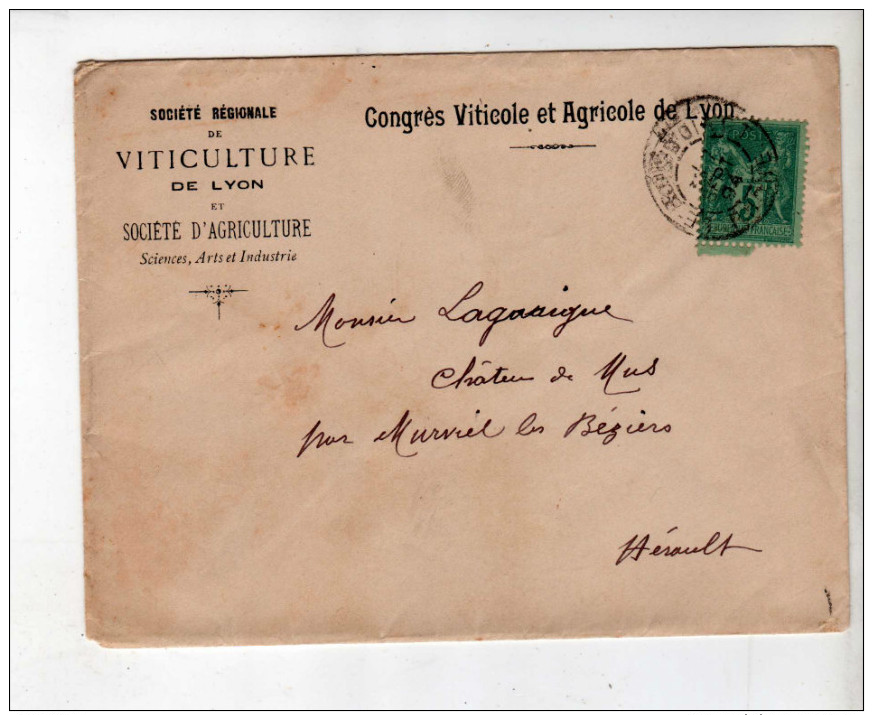 SOCIÉTÉ RÉGIONALE
DE
VITICULTURE
DE LYON
ET
SOCIÉTÉ D'AGRICULTURE
Sciences, Arts et Industrie
Congrès Viticole et Agricole de Lyon
POSTE
5
FRANÇAISE
Monsieur Lagarrigue
Château de Mus
par Murviel les Béziers
Hérault